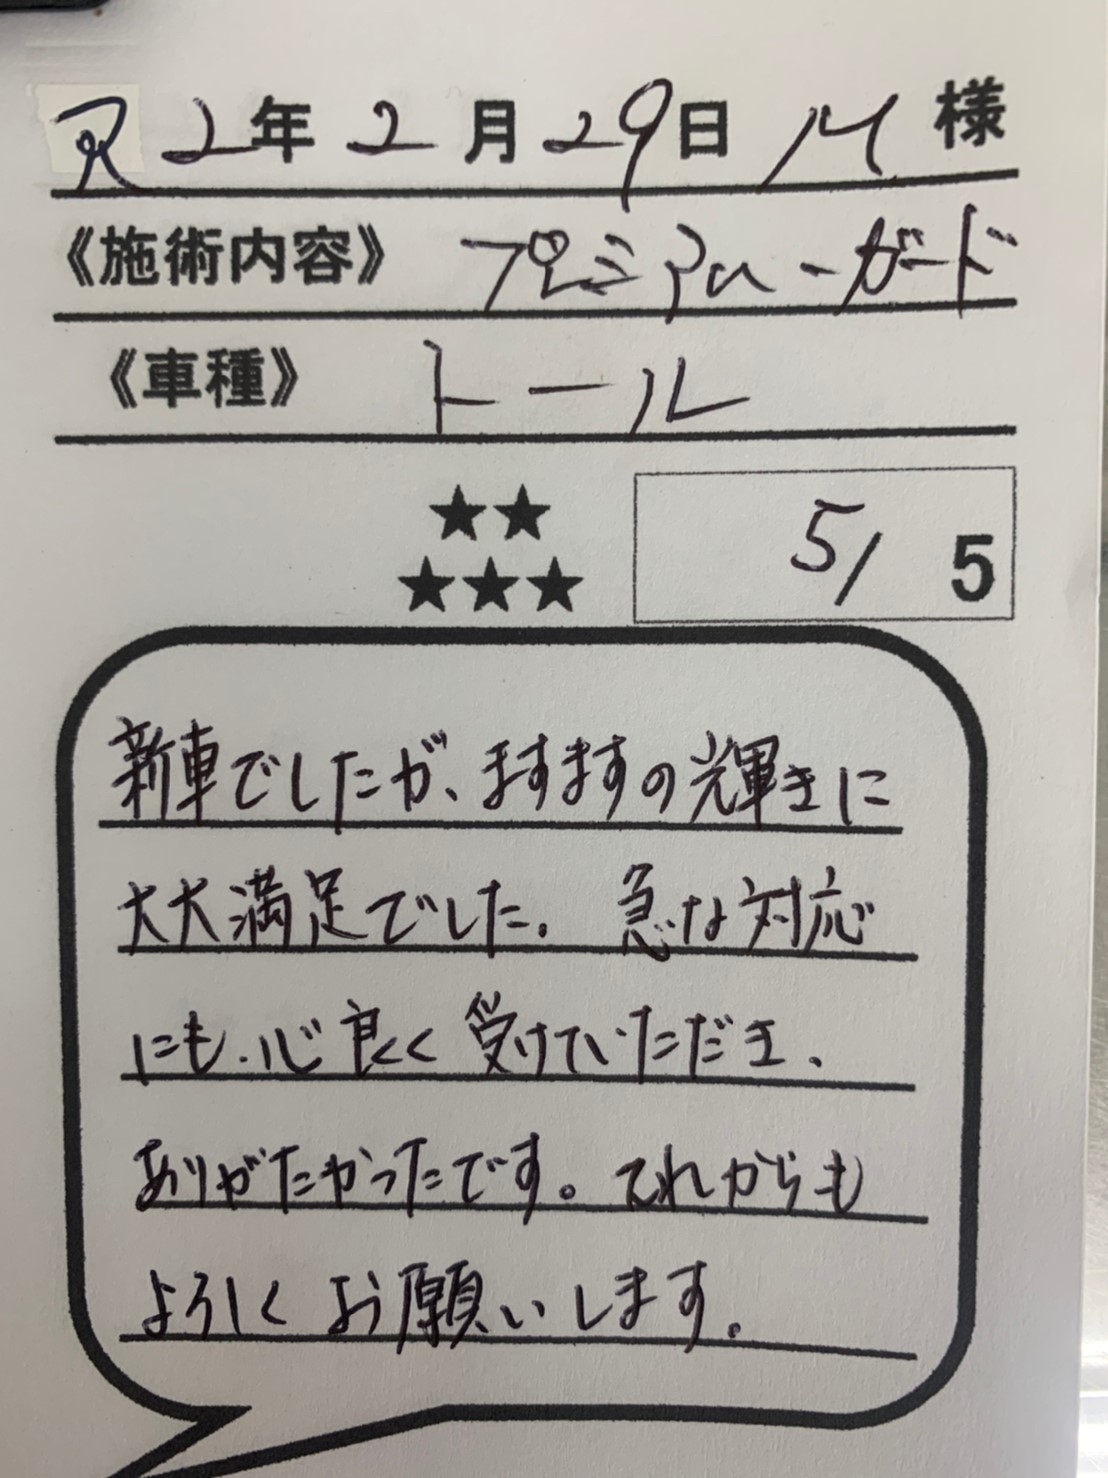 R2年2月29日 M様
《施術内容》 プレミアムーガード
《車種》 トール
★★
★★★
5/5
新車でしたが、ますますの輝きに
大大満足でした。急な対応
にも、心良く受けていただき、
ありがたかったです。これからも
よろしくお願いします。